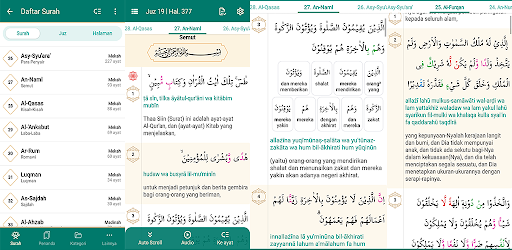 Daftar Surah
Surah
Juz
Halaman
Asy-Syu'ara'
Mekah
Para Penyair
227 ayat
27
An-Naml
Mekah
Semut
93 ayat
28
Al-Qasas
Mekah
Kisah-Kisah
88 ayat
29
Al-'Ankabut
Mekah
Laba-Laba
69 ayat
30
Ar-Rum
Mekah
Romawi
60 ayat
31
Luqman
Mekah
Luqman
34 ayat
32
As-Sajdah
Mekah
Sajdah
30 ayat
33
Al-Ahzab
Madinah
Surah
Penanda
Kategori
Lainnya
Juz 19 | Hal. 377
28. Al-Qasas
27. An-Naml
26. Asy-Syu'ara'
Semut
طسۤ ۚ تِلْكَ اٰيٰتُ الْقُرْاٰنِ وَكِتَابٍ مُّبِيْنٍ
ṭā sīn, tilka āyātul-qur'āni wa kitābim
mubīn
Thaa Siin (Surat) ini adalah ayat-ayat
Al-Qur'an, dan (ayat-ayat) Kitab yang
menjelaskan,
هُدًى وَّبُشْرٰى لِلْمُؤْمِنِيْنَ
hudaw wa busyrā lil-mu'minīn
untuk menjadi petunjuk dan berita gembira
bagi orang-orang yang beriman,
Auto Scroll
Audio
Ke ayat
28. Al-Qasas
27. An-Naml
26. Asy-Syu'ara'
الَّذِيْنَ يُقِيْمُوْنَ الصَّلٰوةَ وَيُؤْتُوْنَ الزَّكٰوةَ
وَهُمْ بِالْاٰخِرَةِ هُمْ يُوْقِنُوْنَ
dan mereka
memberikan
shalat
mereka
mendirikan
orang²
yang
mereka
yakin
mereka
dengan
akhirat
dan
mereka
zakat
allażīna yuqīmūnaṣ-ṣalāta wa yu'tūnaz-
zakāta wa hum bil-ākhirati hum yūqinūn
(yaitu) orang-orang yang mendirikan
shalat dan menunaikan zakat dan mereka
yakin akan adanya negeri akhirat.
اِنَّ الَّذِيْنَ لَا يُؤْمِنُوْنَ بِالْاٰخِرَةِ زَيَّنَّا لَهُمْ
اَعْمَالَهُمْ فَهُمْ يَعْمَهُوْنَ
innallażīna lā yu'minūna bil-ākhirati
zayyannā lahum a'mālahum fa hum
26. Asy-Syu'ara'
25. Al-Furqan
24. An-Nur
kepada seluruh alam,
الَّذِيْ لَهٗ مُلْكُ السَّمٰوٰتِ وَالْاَرْضِ وَلَمْ
يَتَّخِذْ وَلَدًا وَّلَمْ يَكُنْ لَّهٗ شَرِيْكٌ فِى
الْمُلْكِ وَخَلَقَ كُلَّ شَيْءٍ فَقَدَّرَهٗ تَقْدِيْرًا
allażī lahū mulkus-samāwāti wal-arḍi wa
lam yattakhiż waladaw wa lam yakul lahū
syarīkun fil-mulki wa khalaqa kulla syai'in
fa qaddarahū taqdīrā
yang kepunyaan-Nyalah kerajaan langit
dan bumi, dan Dia tidak mempunyai
anak, dan tidak ada sekutu bagi-Nya
dalam kekuasaan(Nya), dan Dia telah
menciptakan segala sesuatu, dan Dia
menetapkan ukuran-ukurannya dengan
serapi-rapinya.
وَاتَّخَذُوْا مِنْ دُوْنِهٖٓ اٰلِهَةً لَّا يَخْلُقُوْنَ